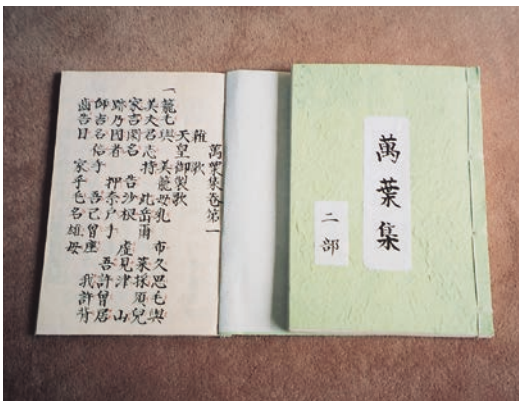 萬葉集
二部
萬葉集巻第一
雜歌
天皇御製歌
一 籠毛與 美籠母乳 布久思毛與
美夫君志持 此岳爾 菜採須兒
家吉閑名 告沙根 虚見津 山
跡乃國者 押奈戸手 吾許曽居
師吉名倍手 吾己曽座 我許背
齒告目 家乎毛名雄母